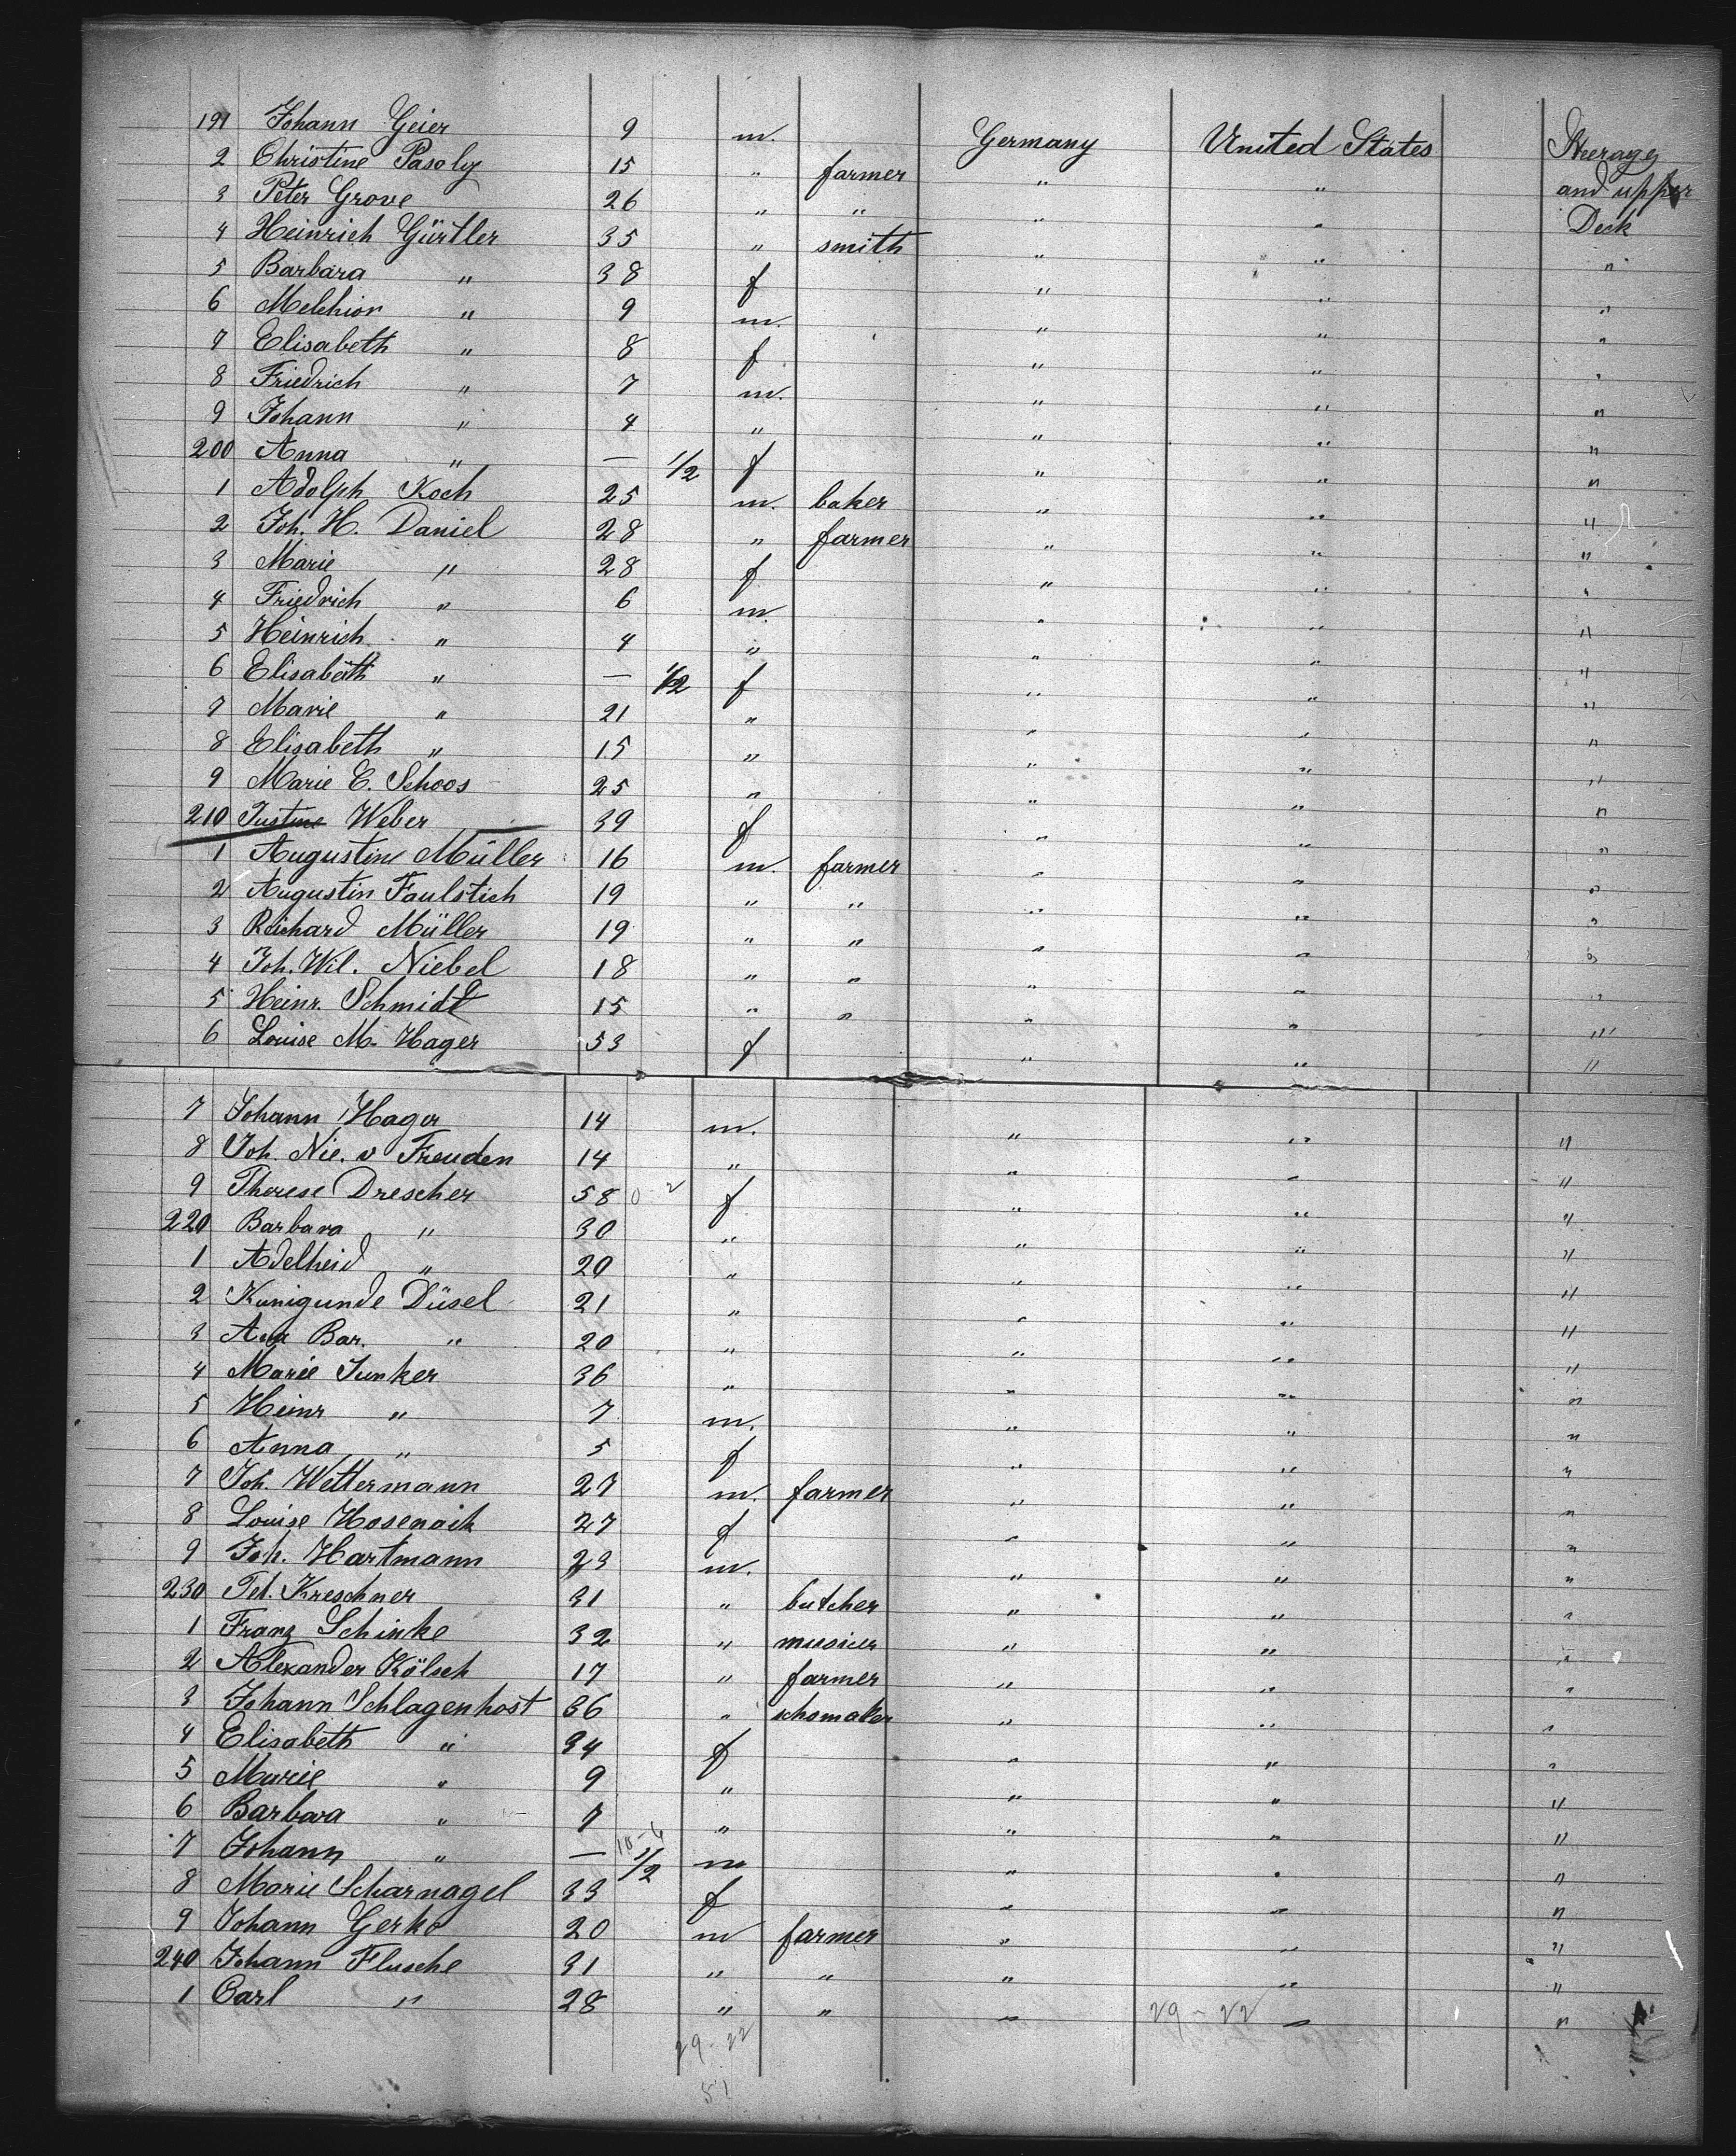 191 Johann Geier 9 m. Germany United States Steerage
2 Christine Pasoly 15 " farmer " " and upper
3 Peter Grove 26 " " " " Deck
4 Heinrich Gürtler 35 " smith " " "
5 Barbara " 38 f " " "
6 Melchior " 9 m. " " "
7 Elisabeth " 8 f " " "
8 Friedrich " 7 m. " " "
9 Johann " 4 " " " "
200 Anna " — 1/2 f " " "
1 Adolph Koch 25 m. baker " " "
2 Joh. H. Daniel 28 " farmer " " "
3 Marie " 28 f " " "
4 Friedrich " 6 m. " " "
5 Heinrich " 4 " " " "
6 Elisabeth " — 1/2 f " " "
7 Marie " 21 " " " "
8 Elisabeth " 15 " " " "
9 Marie C. Schoos 25 " " " "
210 Justine Weber 39 f " " "
1 Augustin Müller 16 m. farmer " " "
2 Augustin Faulstich 19 " " " " "
3 Richard Müller 19 " " " " "
4 Joh. Wil. Niebel 18 " " " " "
5 Heinr. Schmidt 15 " " " " "
6 Louise M. Hager 53 f " " "
7 Johann Hager 14 m. " " "
8 Joh. Nic. v Freuden 14 " " " "
9 Therese Drescher 58 0-2 f " " "
220 Barbara " 30 " " " "
1 Adelheid " 20 " " " "
2 Kunigunde Düsel 21 " " " "
3 Ana Bar. " 20 " " " "
4 Marie Junker 36 " " " "
5 Heinr " 7 m. " " "
6 Anna " 5 f " " "
7 Joh. Wettermann 27 m. farmer " " "
8 Louise 27 f " " "
9 Joh. Hartmann 23 m. " " "
230 Kreschner 31 " butcher " " "
1 Franz Schinke 32 " " " "
2 Alexander Kölsch 17 " farmer " " "
3 Johann Schlagenhost 36 " schomaker " " "
4 Elisabeth " 34 f " " "
5 Marie " 9 " " " "
6 Barbara " 7 " " " "
7 Johann " — 10-6 1/2 m " " "
8 Marie Scharnagel 33 f " " "
9 Johann Gerke 20 m farmer " " "
240 Johann Flusche 31 " " " " "
1 Carl " 28 " " " 29-22 " "
29-22
51